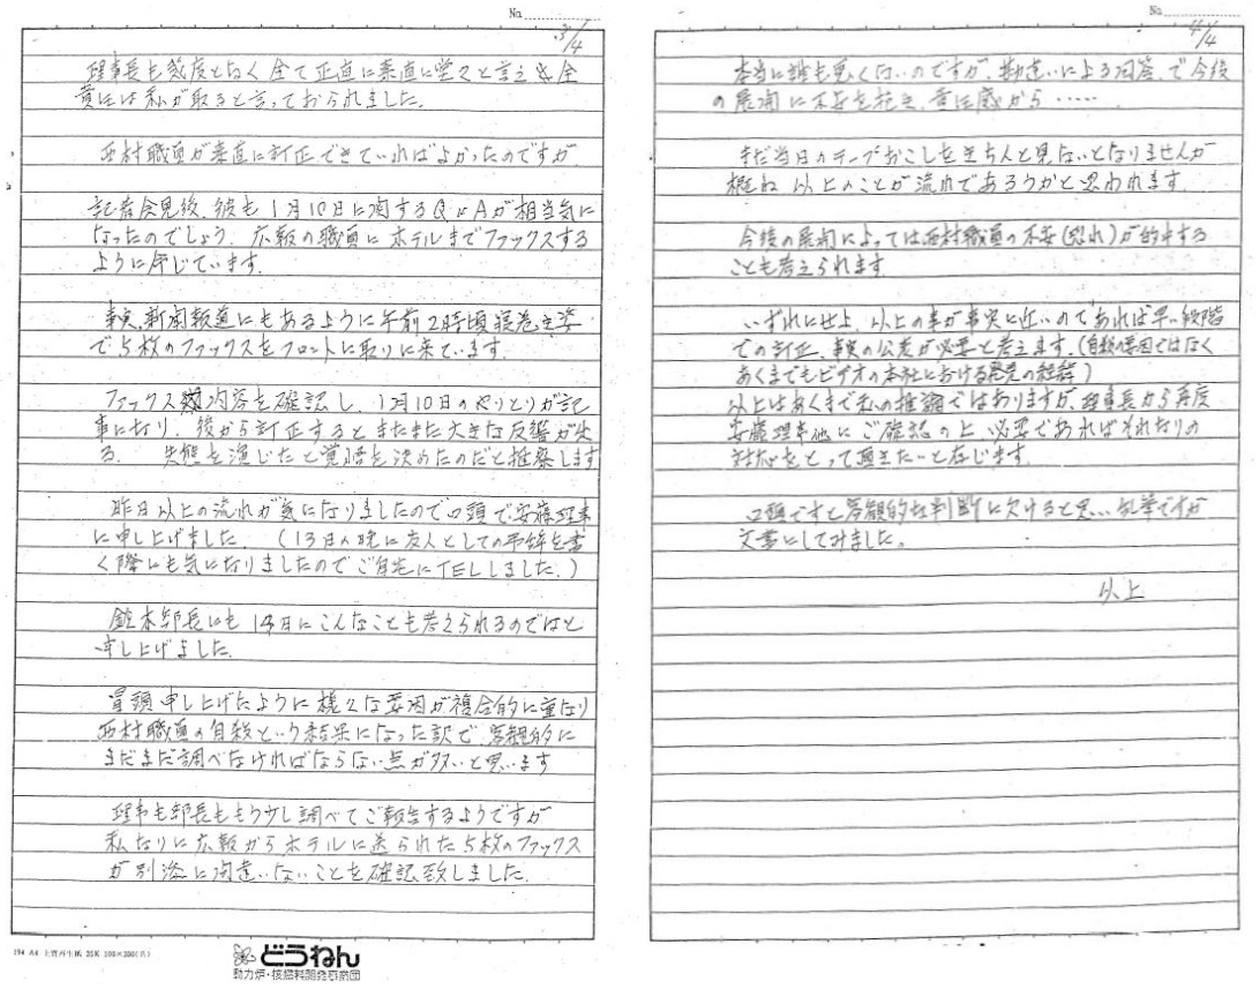 No.
3/4
理事長も幾度となく全て正直に素直に堂々と言え、全
責任は私が取ると言っておられました。
西村職員が素直に訂正できていればよかったのですが
記者会見後、彼も1月10日に関するQ&Aが相当気に
なったのでしょう。広報の職員にホテルまでファックスする
ように命じています。
事実、新聞報道にもあるように午前2時頃寝巻き姿
で5枚のファックスをフロントに取りに来ています。
ファックス内容を確認し、1月10日のやりとりが記
事になり、後から訂正するとまたまた大きな反響が出
る。失態を演じたと覚悟を決めたのだと推察します
昨日以上の流れが気になりましたので口頭で安藤理事
に申し上げました。(13日の晩に友人としての弔辞を書
く際にも気になりましたのでご自宅にTELしました。)
鈴木部長にも14日にこんなことも考えられるのではと
申し上げました。
冒頭申し上げたように様々な要因が複合的に重なり
西村職員の自殺という結果になった訳で、客観的に
まだまだ調べなければならない点が多いと思います
理事も部長ももう少し調べてご報告するようですが
私なりに広報からホテルに送られた5枚のファックス
が別添に間違いないことを確認致しました。
194 A4 上質再生紙
どうねん
動力炉・核燃料開発事業団
No.
4/4
本当に誰も悪くないのですが、勘違いによる回答で今後
の展開に不安を抱き、責任感から……。
まだ当日のテープおこしをきちんと見ないとなりませんが
概ね以上のことが流れであろうかと思われます。
今後の展開によっては西村職員の不安(恐れ)が的中する
ことも考えられます。
いずれにせよ、以上の事が事実に近いのであれば早い段階
での訂正、事実の公表が必要と考えます。(自殺の要因ではなく
あくまでもビデオの本社における発見の経緯)
以上はあくまで私の推論ではありますが、理事長から再度
安藤理事他にご確認の上必要であればそれなりの
対応をとって頂きたいと存じます。
口頭ですと客観的な判断に欠けると思い、乱筆ですが
文書にしてみました。
以上